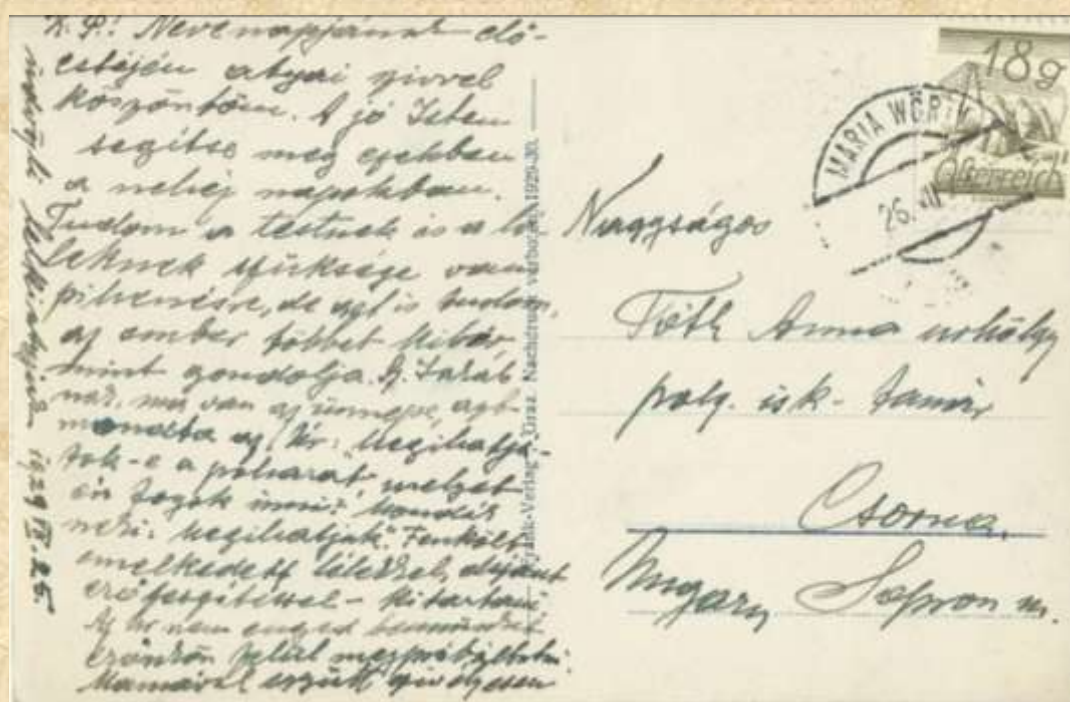 K. P.! Nevenapjának elő-
estéjén atyai szivvel
köszöntöm. A jó Isten
segítse meg ezekben
a nehéz napokban.
Tudom a testnek és a lé-
leknek szüksége van
pihenésre, de azt is tudom,
az ember többet kibir
mint gondolja.
van az ünnepe, azt
mondta az Úr: Megihatjá-
tok-e a poharat, melyet
én fogok inni? Mondák
neki: Megihatjuk. Fenkölt
emelkedett lélekkel,
erőfeszítéssel - kitartani.
Az Úr nem enged bennünket
erőnkön felül megpróbáltatni.
Mamával együtt szivélyesen
üdvözli 1929 VII. 25.
Frank-Verlag, Graz. Nachdruck verboten 1929-30.
18g
Österreich
MARIA WÖRTH
26. VII
Nagyságos
Tóth Anna urhölgy
polg. isk. tanár
Csorna
Ungarn Sopron m.